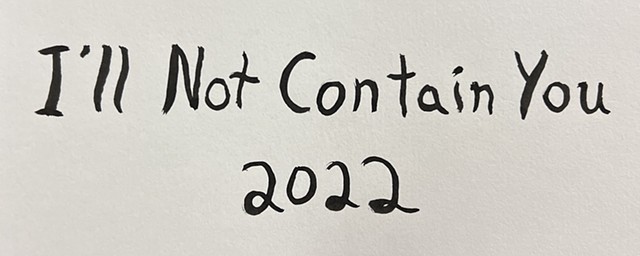 I'll Not Contain You
2022